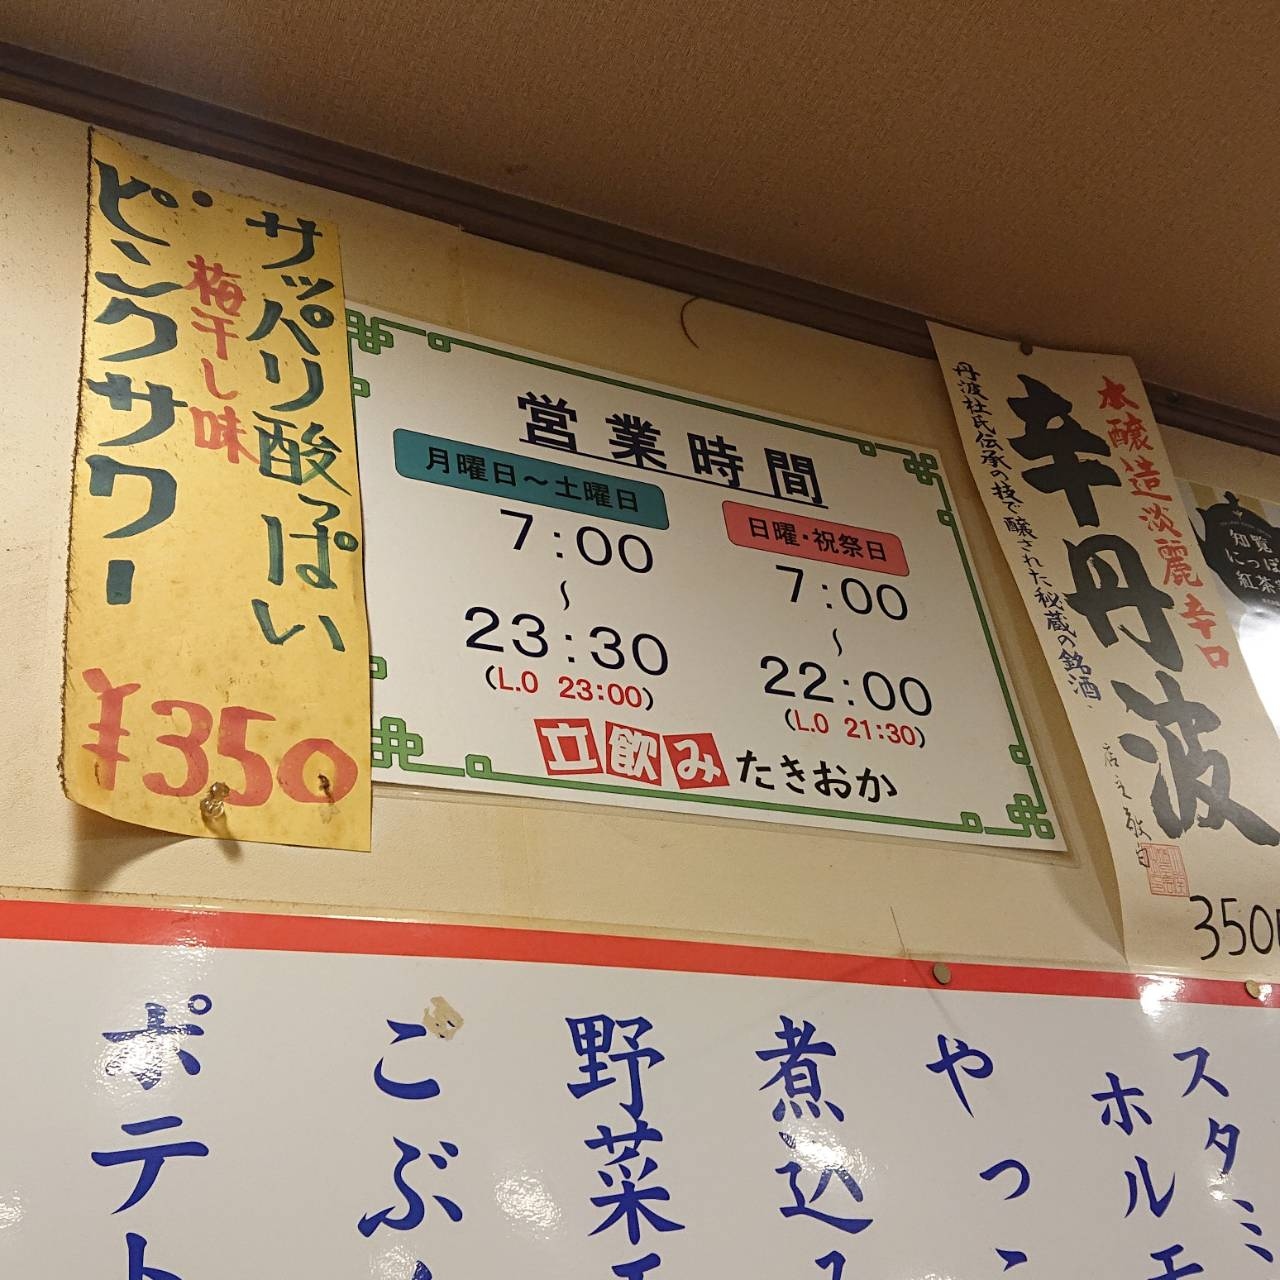 サッパリ酸っぱい
梅干し味
ピンクサワー
¥350
営業時間
月曜日〜土曜日
7:00
〜
23:30
(L.O 23:00)
日曜・祝祭日
7:00
〜
22:00
(L.O 21:30)
立飲み たきおか
本醸造淡麗辛口
辛丹波
丹波杜氏伝承の技で醸された秘蔵の銘酒
店主敬白
350
知覧
にっぽ
紅茶
スタミ
ホルモ
やっこ
煮込
野菜
ごぶ
ポテト